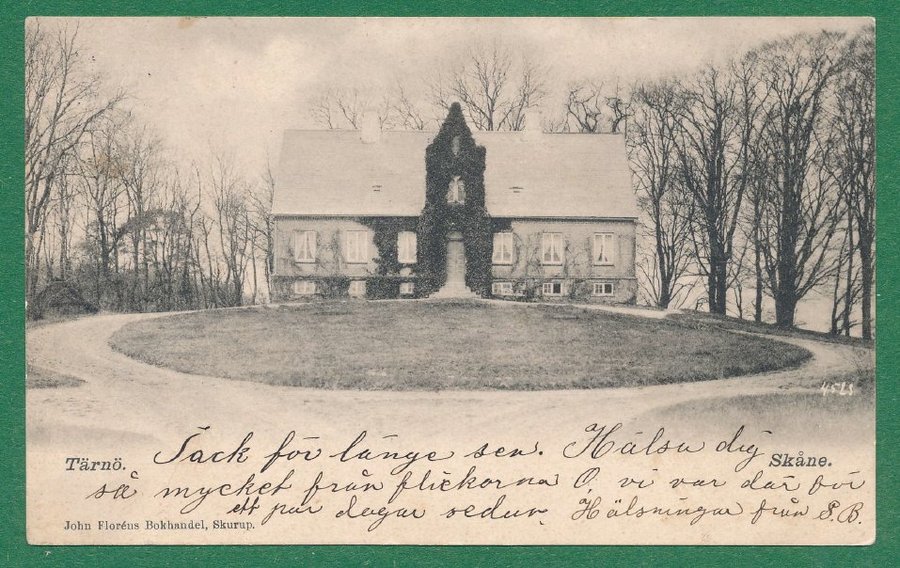 4525
Tack för länge sen. Hälsa dig
Tärnö. Skåne.
så mycket från flickorna O. vi var där för
ett par dagar sedan. Hälsningar från S.B.
John Floréns Bokhandel, Skurup.